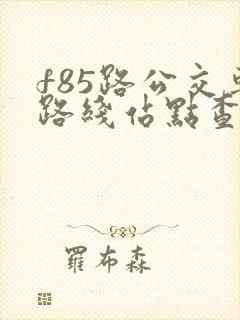 f85路公交
路綫佔點查
羅布森